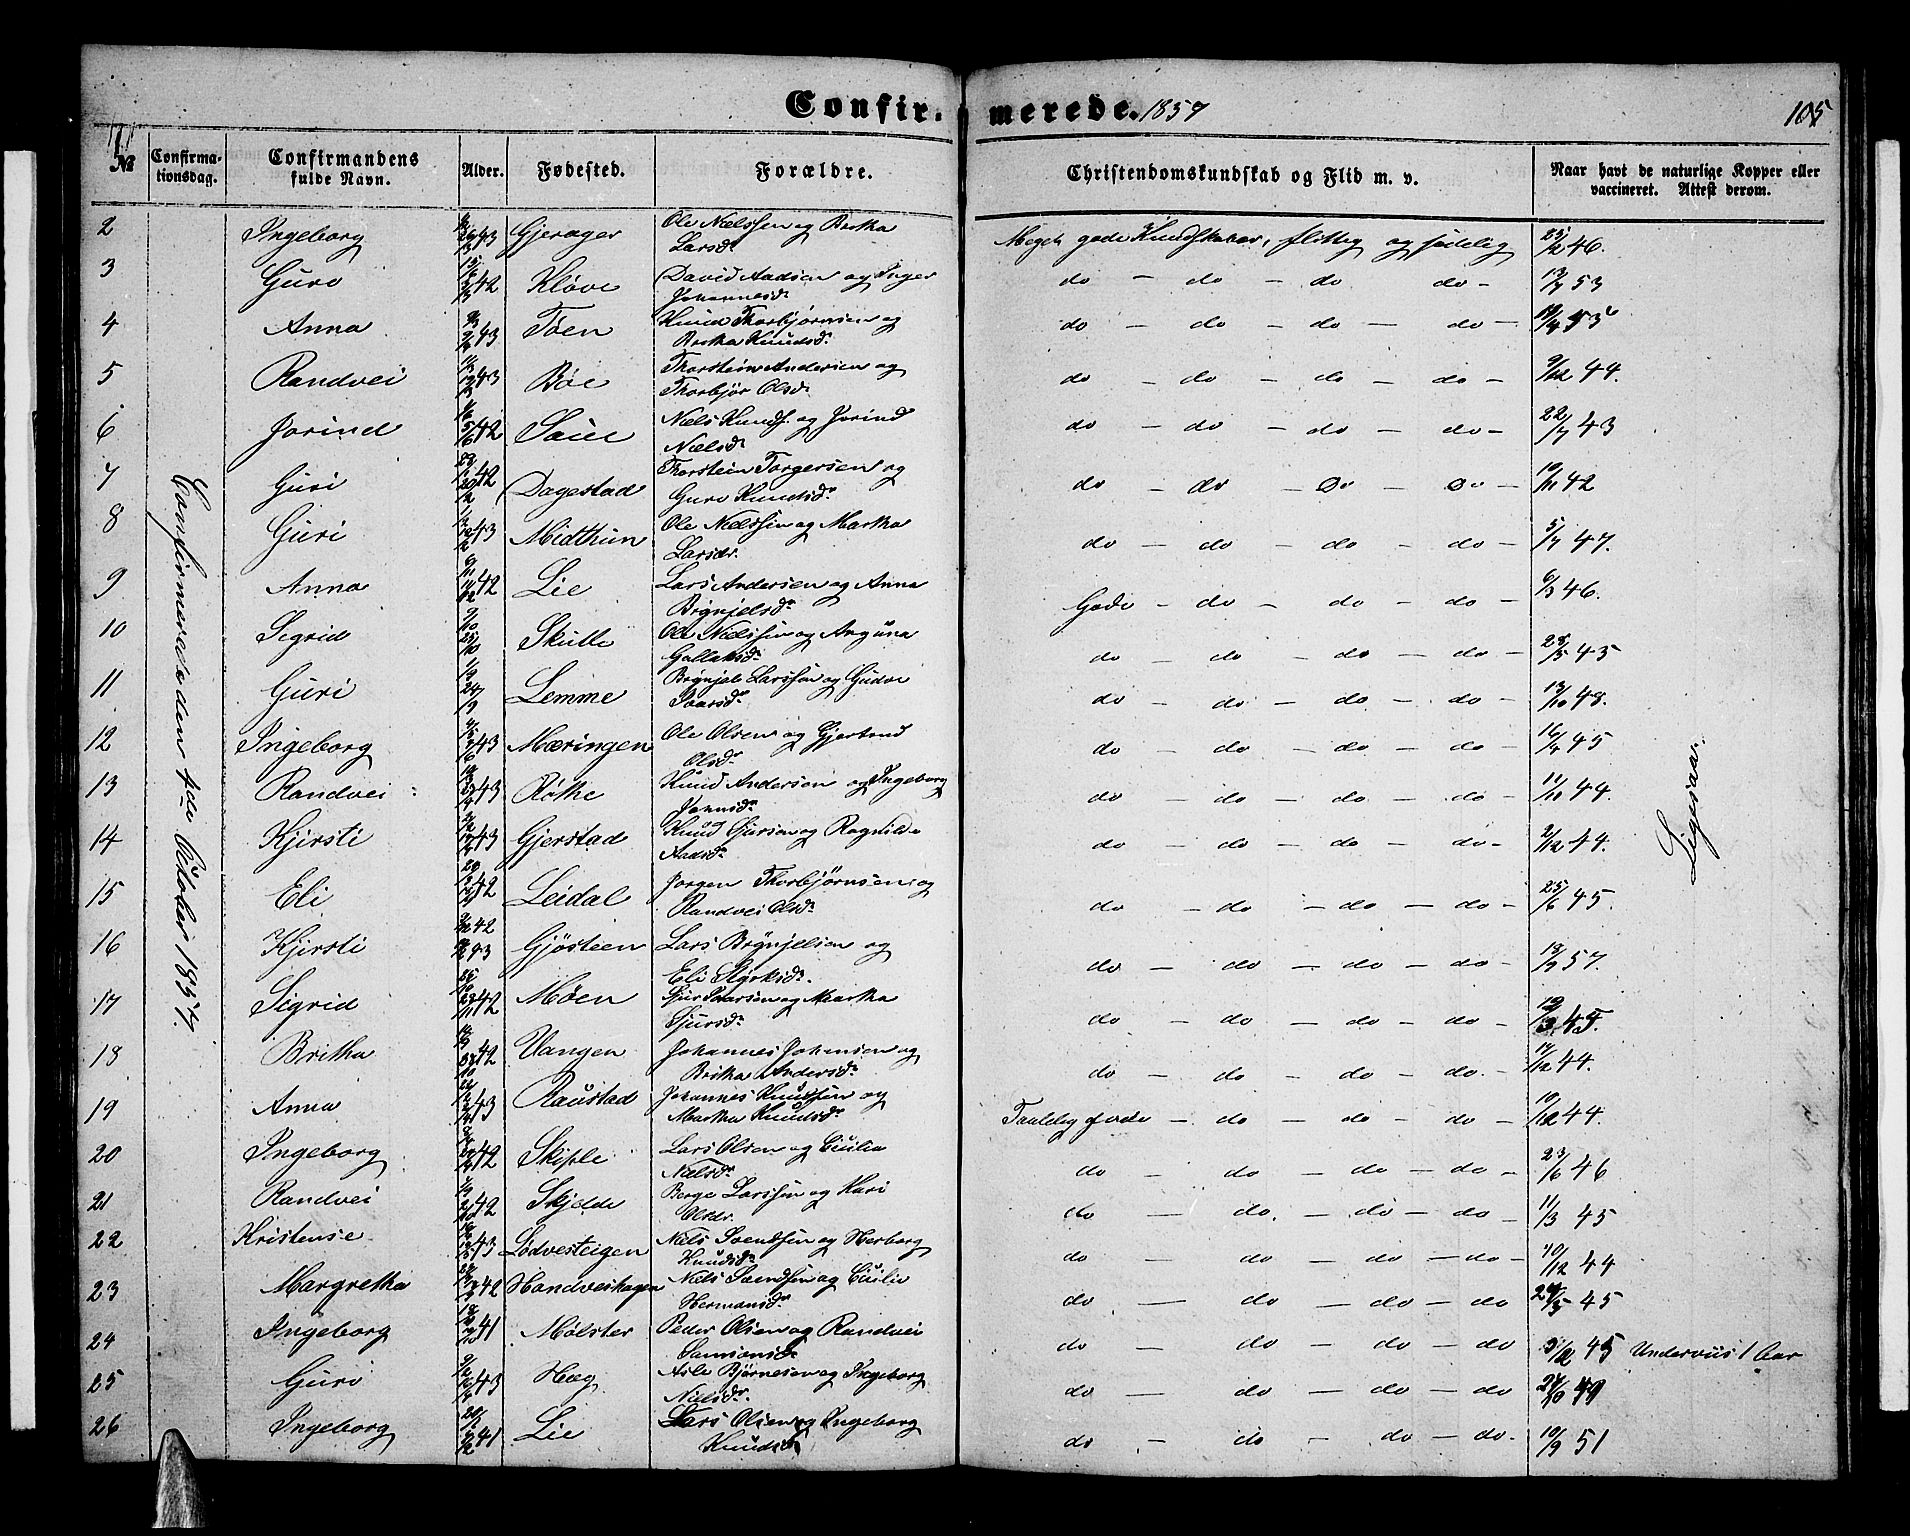 Confirmerede. 1857
105
№ Confirmationsdag. Confirmandens fulde Navn. Alder. Fødested. Forældre. Christendomskundskab og Flid m. v. Naar havt de naturlige Kopper eller vaccineret. Attest derom.
Confirmerede den 4de October 1857.
2 Ingeborg 43 Gjerager Ole Nælssen og Britha Larsdr Meget gode Kundskaber, flittig og sædelig 25/2 46.
3 Guro 42 Kløve David Aadsen og Inger Johannesdr do - do - do do - 53
4 Anna 43 Tøen Knud Thorbjørnsen og Britha Knudsdr do - do - do - do -
5 Randvei 43 Bøe Thorstein Andersen og Thorbjør Olsdr do - do - do - do - 9/12 44.
6 Jorind 42 Saue Næls Knuds. og Jorind Nælsdr do - do - do - do - 22/7 43
7 Guri 42 Dagestad Thorstein Torgersen og Guro Knudsdr do - do - do - do - 10/11 42
8 Guri 43 Midthun Ole Nælssen og Martha Larsdr. do - do - do - do - 5/7 47.
9 Anna 42 Lie Lars Andersen og Anna Brynjelsdr Gode - do - do - do - 6/3 46.
10 Sigrid Skulle Ole Nielssen og Anguna Gullaksdr do - do - do - do - 28/5 43
11 Guri Lemme Brynjel Larssen og Gudve Ivarsdr do - do - do - do - 13/10 48.
12 Ingeborg 43 Mæringen Ole Olsen og Gjertrud Olsdr do - do - do - do - 16/7 45
13 Randvei 43 Røthe Knud Andersen og Ingeborg Johnsdr do - do - do - do - 11/10 44.
14 Kjirsti 43 Gjerstad Knud Sjursen og Ragnilde Aadsdr do - do - do - do - 2/12 44.
15 Eli 42 Leidal Jørgen Thorbjørnsen og Randvei Olsdr do - do - do - do - 25/6 45.
16 Kjirsti 42 43 Gjøsteen Lars Brynjelsen og Eli Styrksdr. do - do - do - do - 57.
17 Sigrid 42 Møen Sjur Ivarsen og Martha Sjursdr do - do - do - do -
18 Britha 42 Vangen Johannes Johnsen og Britha Andersdr do - do - do - do - 44.
19 Anna 43 Raustad Johannes Knudsen og Martha Knudsdr Taalelig gode - do - do - do - 44.
20 Ingeborg 42 Skiple Lars Olsen og Cicilia Nælsdr do - do - do - do - 23/6 46
21 Randvei 42 Skjelde Berge Larssen og Kari Olsdr. do - do. - do - do - 11/3 45
22 Kristense 43 Lødvesteigen Niels Svendsen og Herborg Knudsdr do - do - do - do - 10/12 44
23 Margretha 42 Handveshagen Niels Svendsen og Cicilie Hermansdr do - do - do - do - 45
24 Ingeborg 41 Mølster Peder Olsen og Randvei Samsonsdr do - do - do - do 45 Underviist 1 Aar
25 Guro 43 Hæg Asle Bjørnesen og Ingeborg Nielsdr do - do - do - do 49
26 Ingeborg 41 Lie Lars Olsen og Ingeborg Knudsdr do - do - do - do. 10/9 51
Ligesaa.